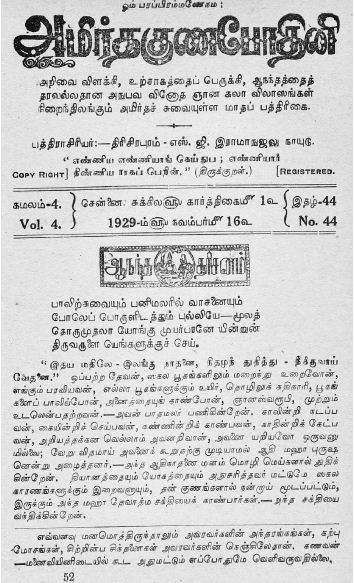 ஓம் பரப்பிரம்மணேநம :
அமிர்தகுணபோதினி
அறிவை விளக்கி, உற்சாகத்தைப் பெருக்கி, ஆநந்தத்தைத்
தரவல்லதான அநுபவ விநோத ஞான கலா விலாஸங்கள்
நிறைந்திலங்கும் அமிர்தச் சுவையுள்ள மாதப் பத்திரிகை.
பத்திராசிரியர்:—திரிசிரபுரம் - எஸ். ஜி. இராமாநுஜலு நாயுடு.
" எண்ணிய எண்ணியாங் கெய்துப ; எண்ணியார்
COPY RIGHT] திண்ணிய ராகப் பெறின். " (திருக்குறள்.) [REGISTERED.
கமலம்-4. சென்னை சுக்கிலளு கார்த்திகைமீ 1௳ இதழ்-44
Vol. 4. 1929-ம்ளு நவம்பர்மீ 16௳ No. 44
ஆநந்த தரிசனம்
பாலிற்சுவையும் பனிமலரில் வாசனையும்
போலெப் பொருளிடத்தும் புல்லியே—மூலத்
தொருமுதலா யோங்கு முயர்பானே யின்றுன்
திருவருளை யெங்களுக்குச் செய்.
" இதய மதிலே-இலங்கு நாதனை, நிதமுந் துதித்து - நீக்குவாய்
வேதனை." ஒப்பற்ற தேவன், ஸகல பூதங்களிலும் மறைந்து உறைவோன்,
எங்கும் பரவியவன், எல்லா பூதங்களுக்கும் உயிர், தொழிலுக் கதிகாரி, பூதங்
களைப் பாலிப்போன், அனைத்தையுங் காண்போன், ஞானஸ்வரூபி, முற்றும்
உடலென்பதற்றவன்.—அவன் பாதமலர் பணிகின்றேன். காலின்றி நடப்ப
வன், கையின்றிச் செய்பவன், கண்ணின்றிக் காண்பவன், காதின்றிக் கேட்ப
வன், அறியத்தக்கன வெல்லாம் அவனறிவான், அவனை யறியவோ ஒருவனு
மில்லை; வேறு விதமாய் அவனைக் கூறுதற்கு முடியாமல் ஆதி மஹா புருஷ
னென்று அழைத்தனர்.—அந்த ஆதிநாதனை மனம் மொழி மெய்களால் துதிக்
கின்றேன். தியானத்தையும் யோகத்தையும் அநுசரித்தவர் மட்டுமே ஸகல
காரணங்களுக்கும் இறைவனாயும், தன் குணங்களால் நன்றாய் மூடப்பட்டும்,
இருக்கும் அந்த மஹா தேவாத்ம சக்தியைக் காண்பார்கள்.—அந்த சக்தியை
வந்திக்கின்றேன்.
எவ்வளவு மனமொத்திருந்தாலும் அவரவர்களின் அந்தரங்கங்கள், கற்பு
மோசங்கள், சிற்றின்ப சிந்தனைகள் அவரவர்களின் நெஞ்சிலேதான். கணவன்
—மனைவியினிடையில் கூட அதுமட்டும் எப்போதுமே வெளிவருவதில்லை,
52